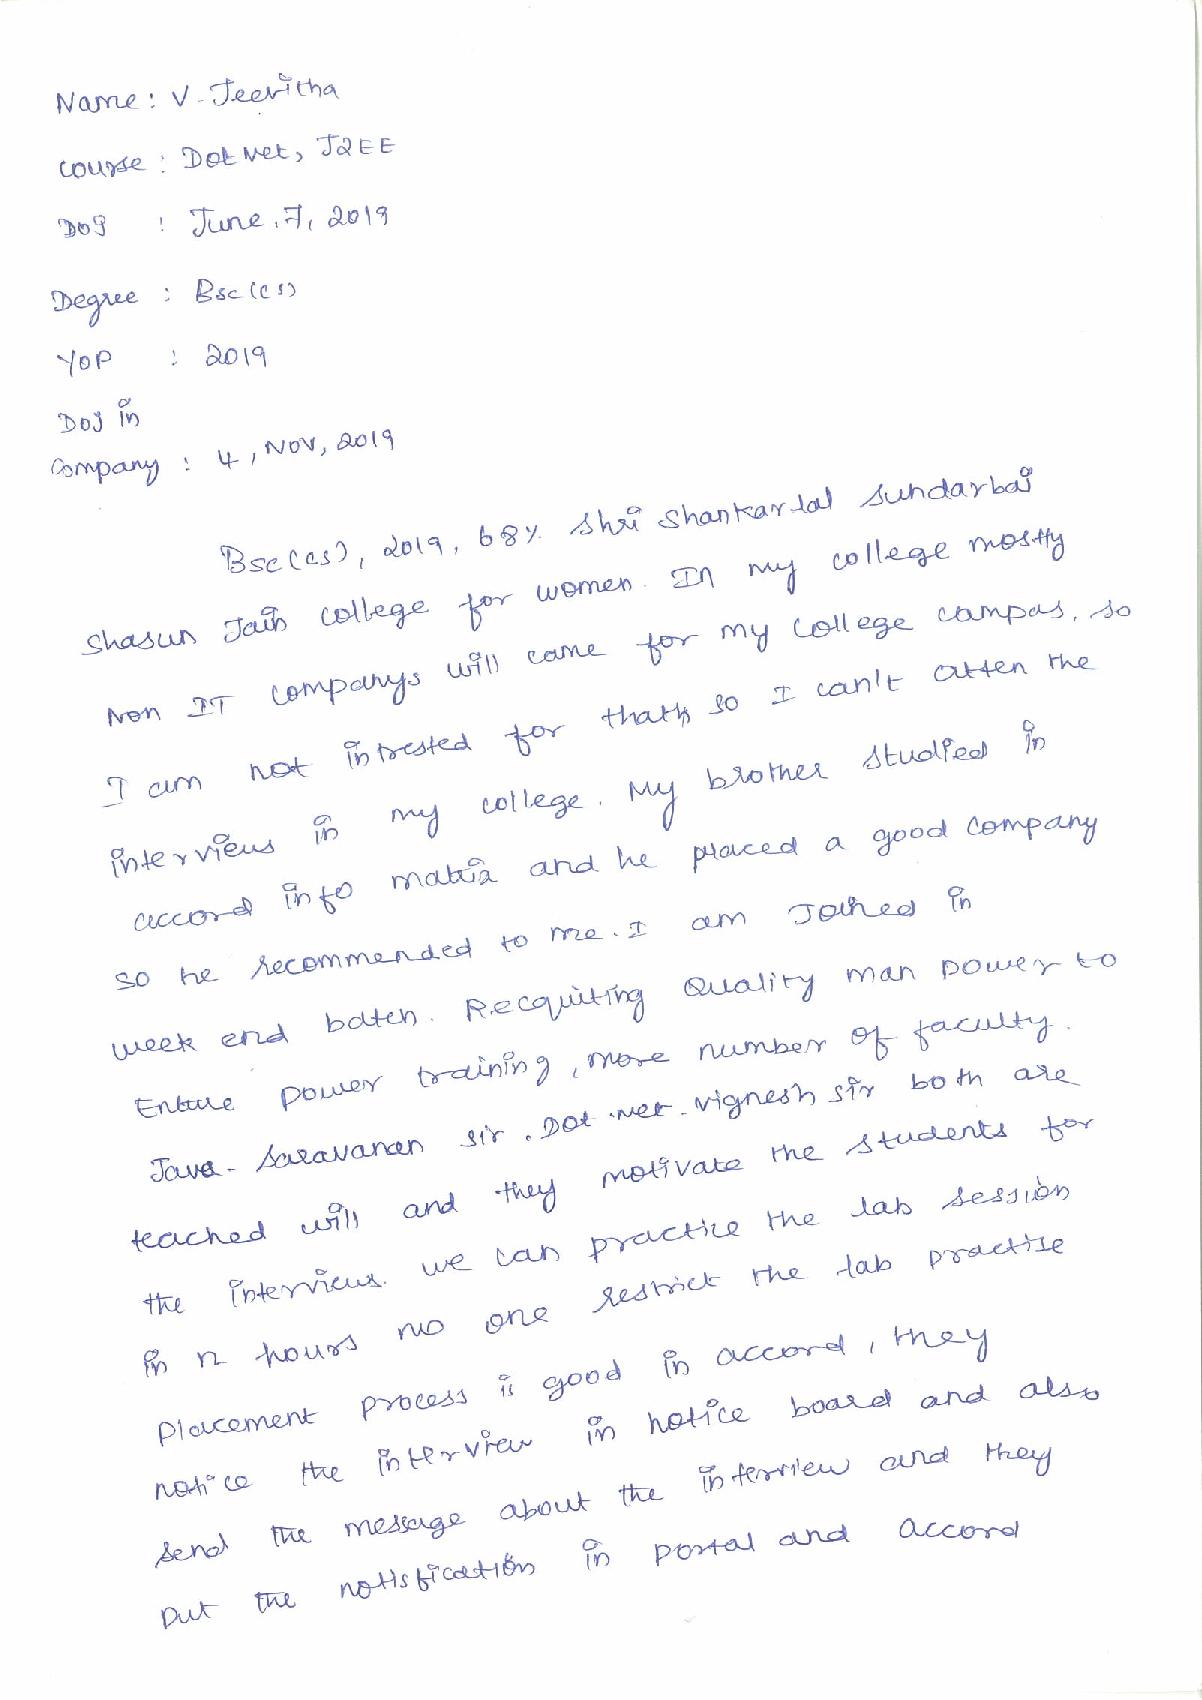 Name : V. Jeevitha
Course : Dot Net, J2EE
DOJ : June, 7, 2019
Degree : Bsc (cs)
YOP : 2019
DOJ in
Company : 4, Nov, 2019
Bsc (cs), 2019, 68% Shri Shankarlal Sundarbai
Shasun Jain College for women. In my college mostly
Non IT companys will came for my college campas, so
I am not intrested for that, so I can't atten the
interviews in my college. My brother studied in
accord info matrix and he placed a good company
so he recommended to me. I am Joined in
week end batch. Recquiting Quality man power to
Entire power training, more number of faculty.
Java - Saravanan sir. Dot net - vignesh sir both are
teached will and they motivate the students for
the interviews. we can practice the lab session
in n hours no one restrict the lab practise
Placement process is good in accord, they
notice the interview in notice board and also
send the message about the interview and they
put the notisfication in portal and accord